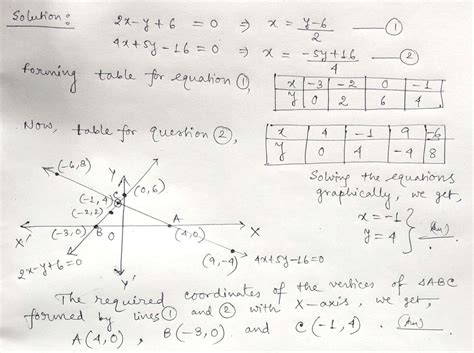 Solution:
2x-y+6 = 0 ⇒ x = (y-6)/2 —— ①
4x+5y-16 = 0 ⇒ x = (-5y+16)/4 —— ②
forming table for equation ①,
x | -3 | -2 | 0 | -1
y | 0 | 2 | 6 | 4
Now, table for question ②,
x | 4 | -1 | 9 | -6
y | 0 | 4 | -4 | 8
Solving the equations
graphically, we get,
x = -1
y = 4 } (An)
(-6,8)
Y
(0,6)
C
(-1,4)
(-2,2)
(-3,0) B O A (4,0)
X' X
2x-y+6=0
Y'
(9,-4) 4x+5y-16=0
The required coordinates of the vertices of ΔABC
formed by lines ① and ② with X-axis, we get,
A(4,0), B(-3,0) and C(-1,4). (An)